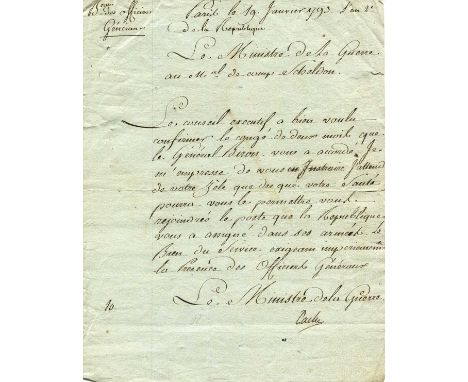 des officiers
Généraux
Paris le 19. Janvier 1793. L'an 2e
de la République
Le Ministre de la Guerre
au Mal de camp Scheldon.
Le conseil executif a bien voulu
confirmer le congé de deux mois que
le Général Biron vous a accordé. Je
m'empresse de vous en Instruire J'attend
de votre Zele que dès que votre Santé
pourra vous le permettre vous
rejoindrez le poste que la République
vous a assigné dans ses armées. Le
Bien du Service exigeant impérieusement
la Présence des Officiers Généraux
Le Ministre de la Guerre.
Pache
10.